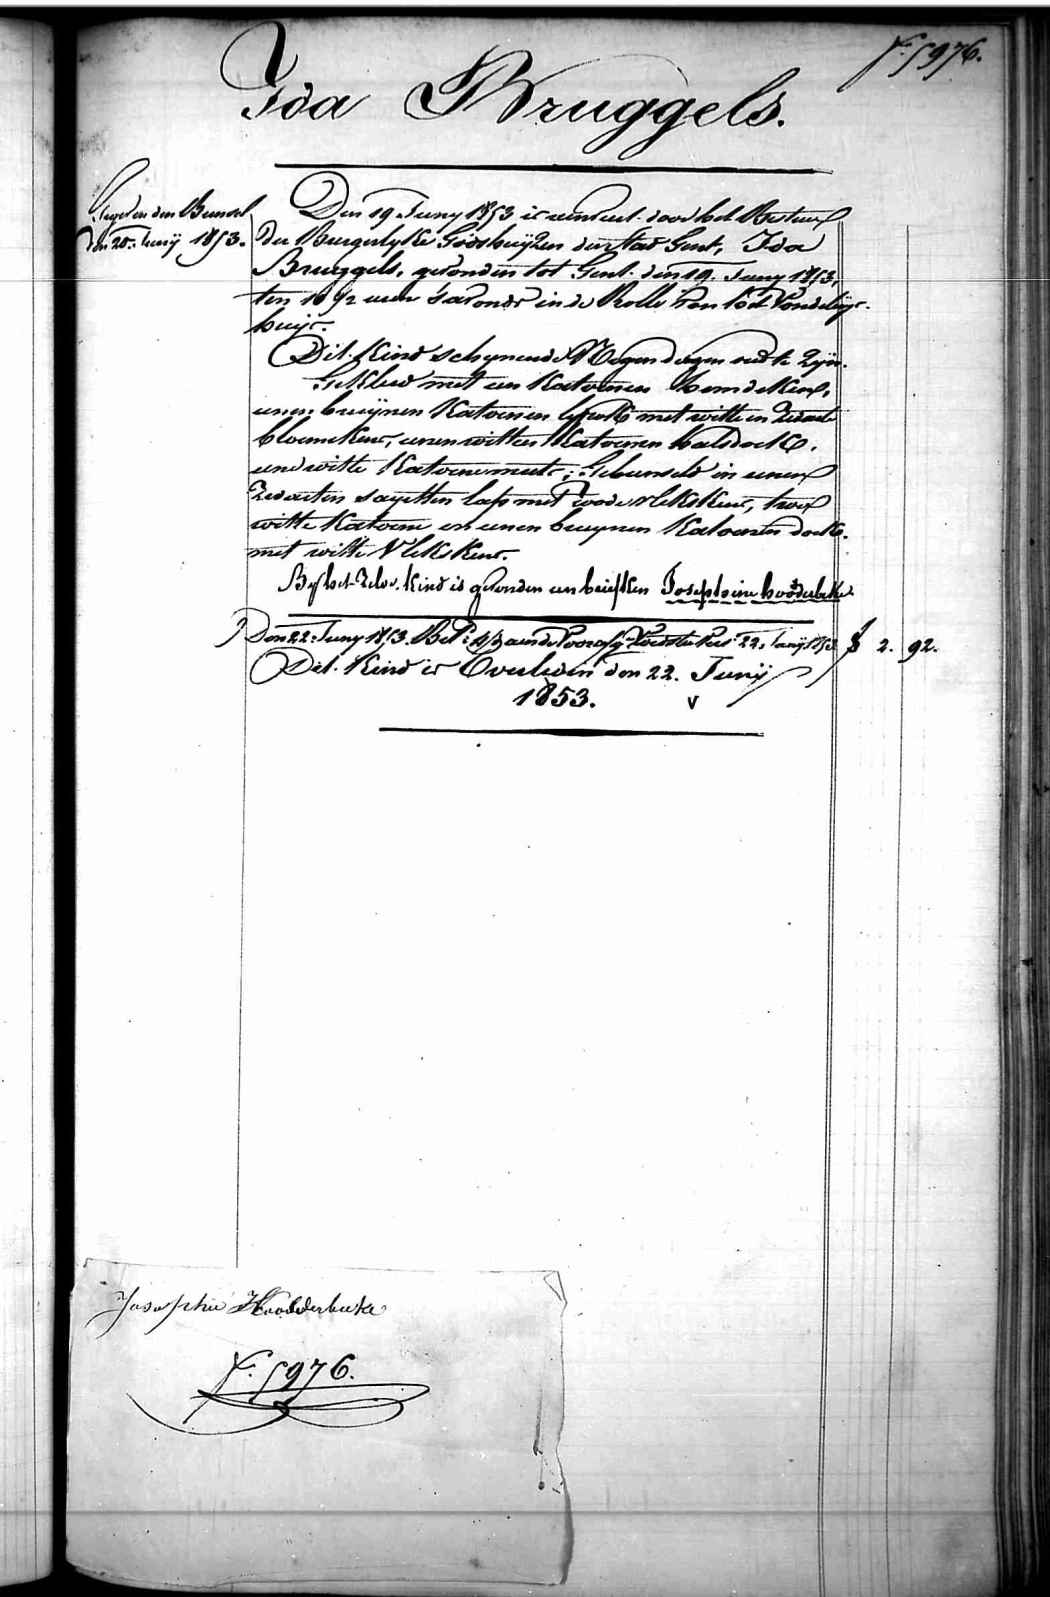 F. 5976.
Ida Bruggels.
den Bureel
den 20. Junij 1853.
Den 19 Juny 1853 is door het Bestuur
der Burgerlyke Godshuyzen der Stad Gent, Ida
Bruggels, gevonden tot Gent den 19. Juny 1853,
ten 10 1/2 uren s'avonds in de Rolle van het Vondelijx-
huijs.
Dit Kind schynende Negen dagen oud te Zyn.
Gekleed met een Katoenen hemdeken,
eenen bruijnen Katoenen met witte en Zwarte
bloemekens, eenen witten Katoenen halsdoek,
eene witte Katoene muts; Gebunseld in eenen
Zwarten sayetten lap met roode vlekskens, twee
witte Katoene en eenen bruynen Katoenen doek
met witte Vlekskens.
By het Zelve Kind is gevonden een briefken Josephine hoodderbeke
Den 22. Juny 1853 Bet: aen de Voedster Per 22. Junij 1853 $ 2. 92.
Dit Kind is Overleden den 22. Junij
1853. v
Josephie Hoodderbeeke
F. 5976.